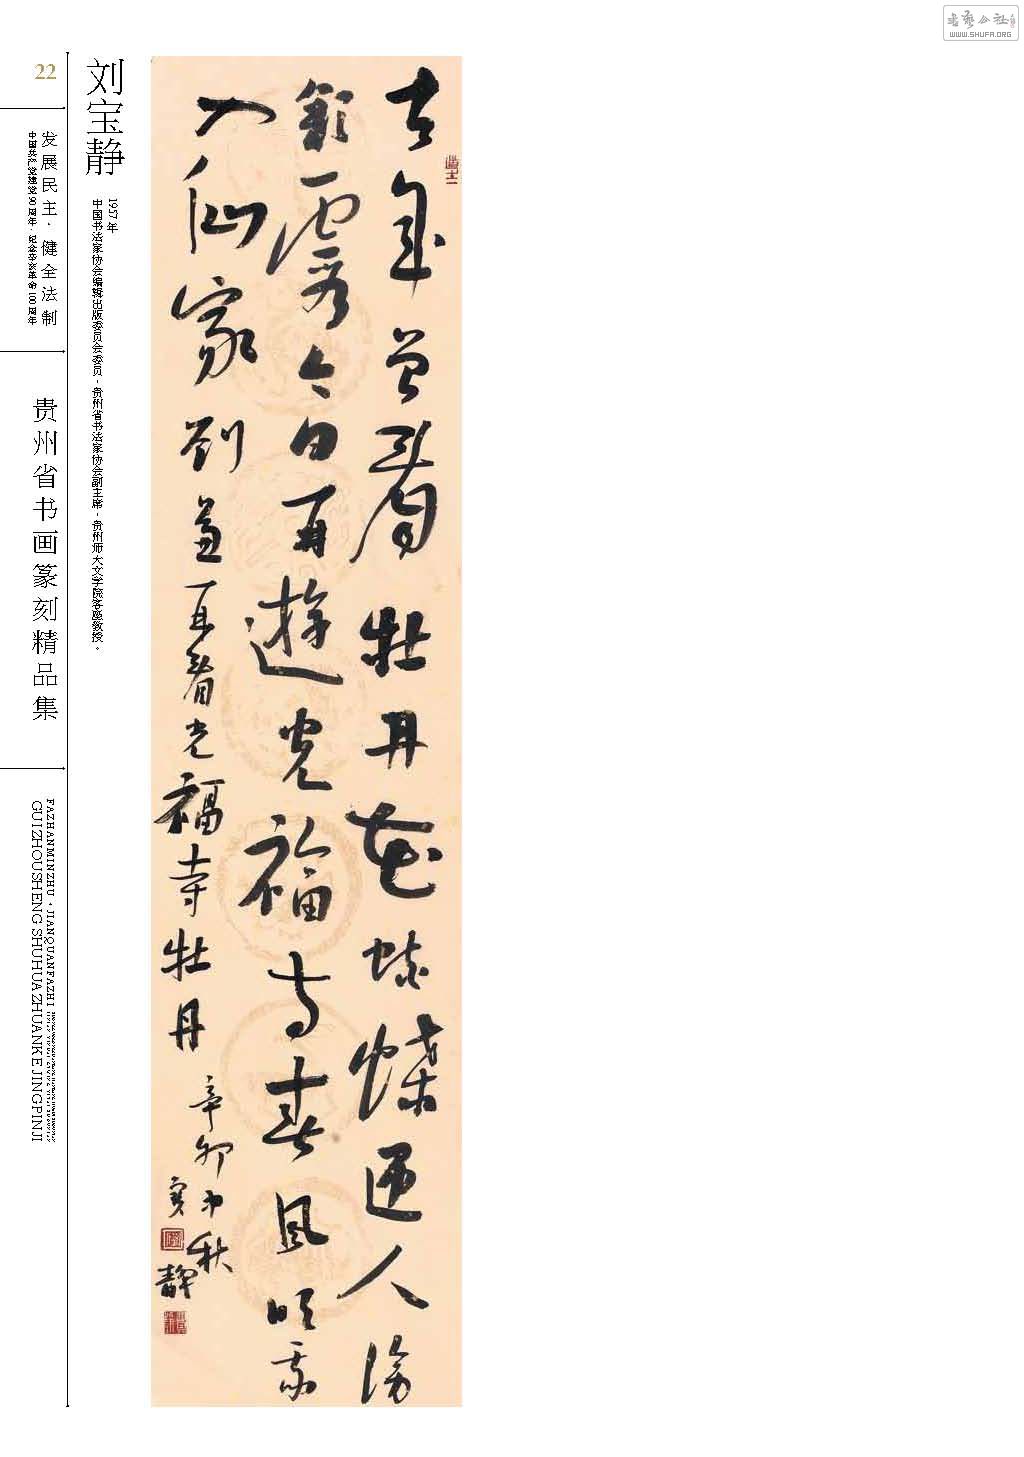 书艺公社
WWW.SHUFA.ORG
22
发展民主·健全法制
中国共产党建党90周年·纪念辛亥革命100周年
贵州省书画篆刻精品集
FAZHANMINZHU·JIANQUANFAZHI
GUIZHOUSHENG SHUHUAZHUANKE JINGPINJI
刘宝静
1957 年
中国书法家协会编辑出版委员会委员，贵州省书法家协会副主席，贵州师大文学院客座教授。
去年曾看牡丹花蛱蝶迎人傍
彩霞今日再遊光福寺春風吹我
入仙家刘兼再看光福寺牡丹
辛卯中秋
寶靜